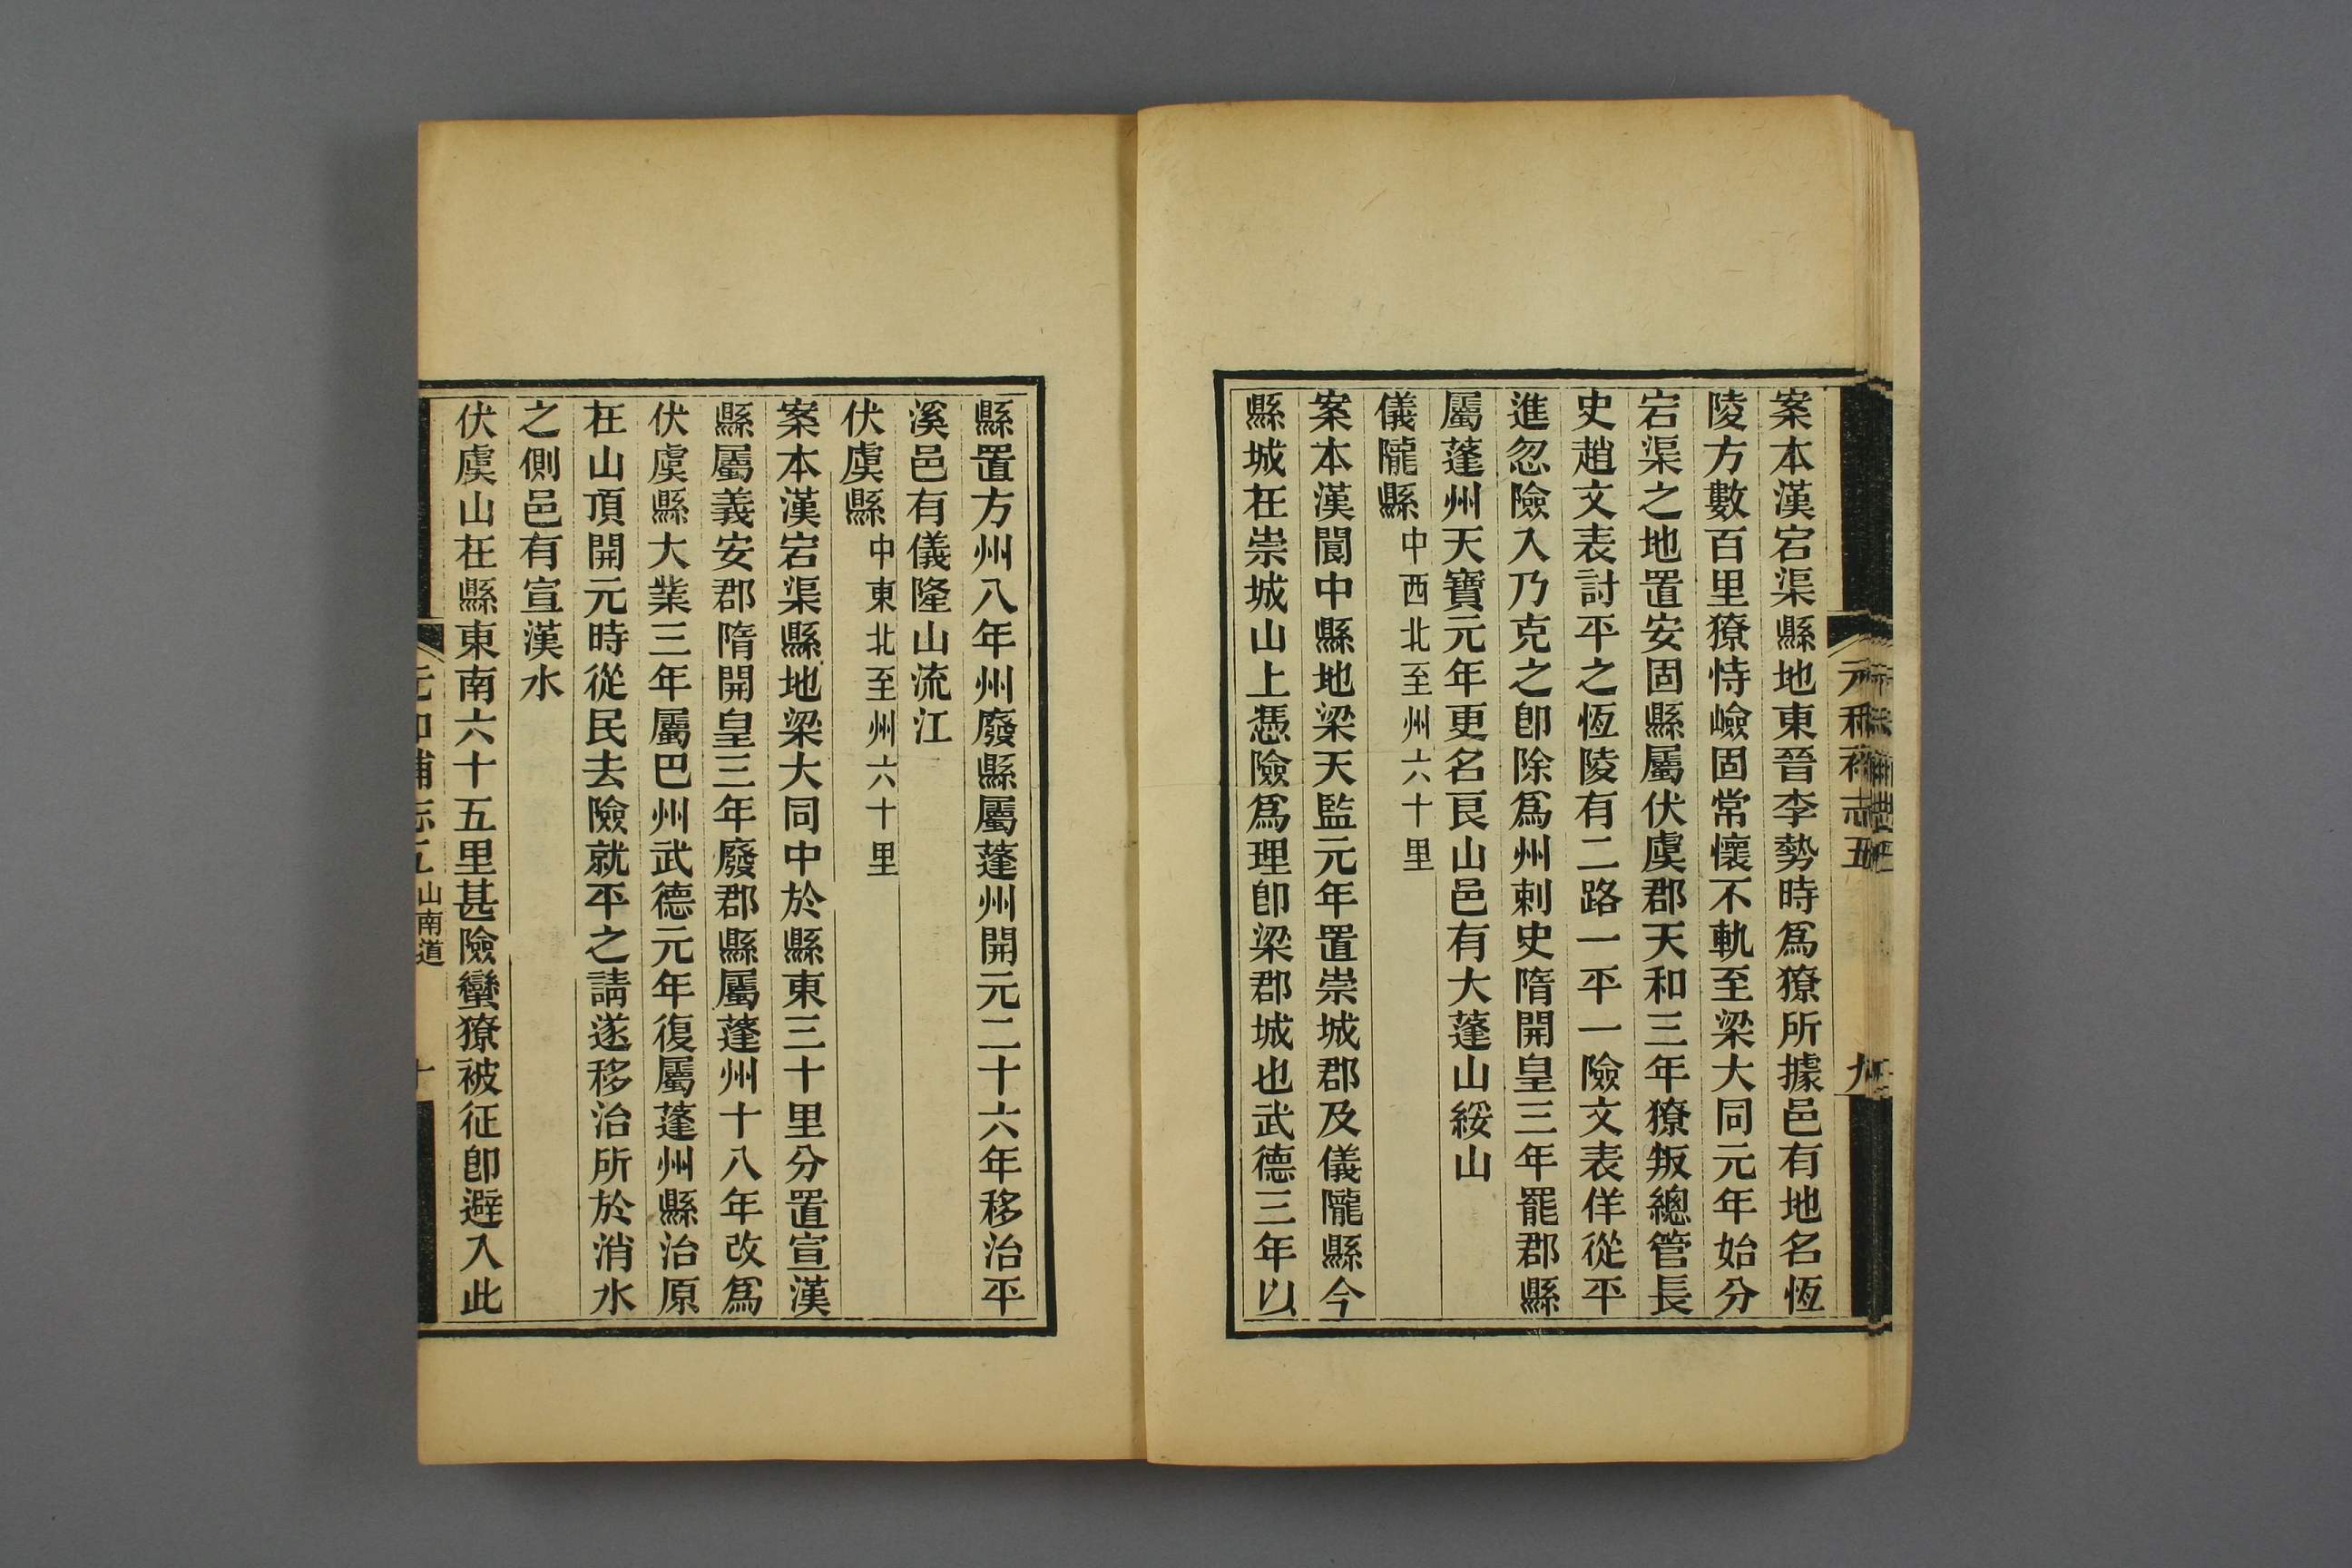 案本漢宕渠縣地東晉李勢時爲獠所據邑有地名恆
陵方數百里獠恃嶮固常懷不軌至梁大同元年始分
宕渠之地置安固縣屬伏虞郡天和三年獠叛總管長
史趙文表討平之恆陵有二路一平一險文表佯從平
進忽險入乃克之卽除爲州刺史隋開皇三年罷郡縣
屬蓬州天寶元年更名良山邑有大蓬山綏山
儀隴縣中西北至州六十里
案本漢閬中縣地梁天監元年置崇城郡及儀隴縣今
縣城在崇城山上憑險爲理卽梁郡城也武德三年以
縣置方州八年州廢縣屬蓬州開元二十六年移治平
溪邑有儀隆山流江
伏虞縣中東北至州六十里
案本漢宕渠縣地梁大同中於縣東三十里分置宣漢
縣屬義安郡隋開皇三年廢郡縣屬蓬州十八年改爲
伏虞縣大業三年屬巴州武德元年復屬蓬州縣治原
在山頂開元時從民去險就平之請遂移治所於消水
之側邑有宣漢水
伏虞山在縣東南六十五里甚險蠻獠被征卽避入此
山南道